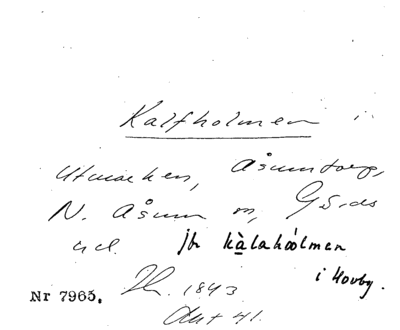 Kalfholmen i
Utmarken, Åsumtorp,
N. Åsum sn, Gärds
hd. jfr kàlahóolmen
i Hovby.
Nr 7965. 1843
Akt 41.